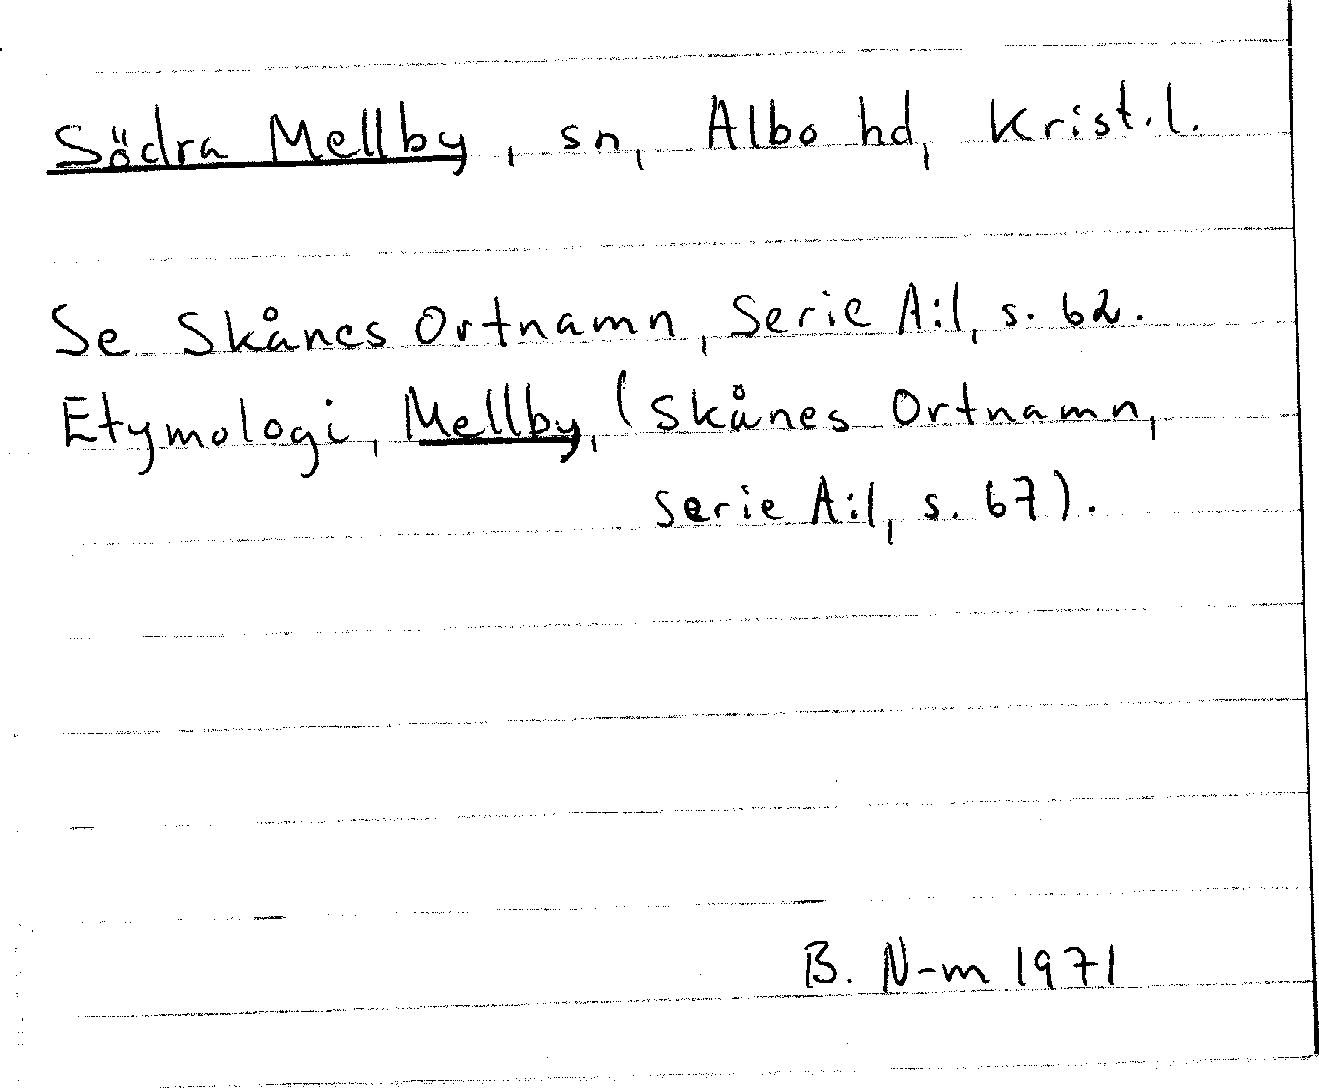 Södra Mellby, sn, Albo hd, Krist.l.
Se Skånes Ortnamn, Serie A:1, s. 62.
Etymologi, Mellby, (Skånes Ortnamn,
Serie A:1, s. 67).
B. N-m 1971